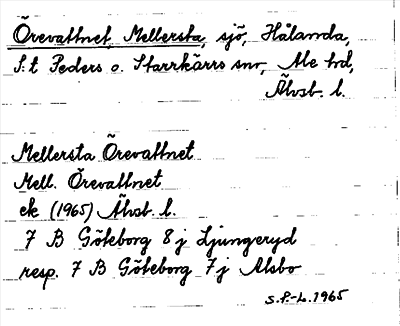 Örevattnet, Mellersta, sjö, Hålanda,
S:t Peders o. Starrkärrs snr, Ale hd,
Älvsb. l.
Mellersta Örevattnet
Mell. Örevattnet
ek (1965) Älvsb. l.
7 B Göteborg 8 j Ljungeryd
resp. 7 B Göteborg 7 j Alsbo
S.P-L. 1965